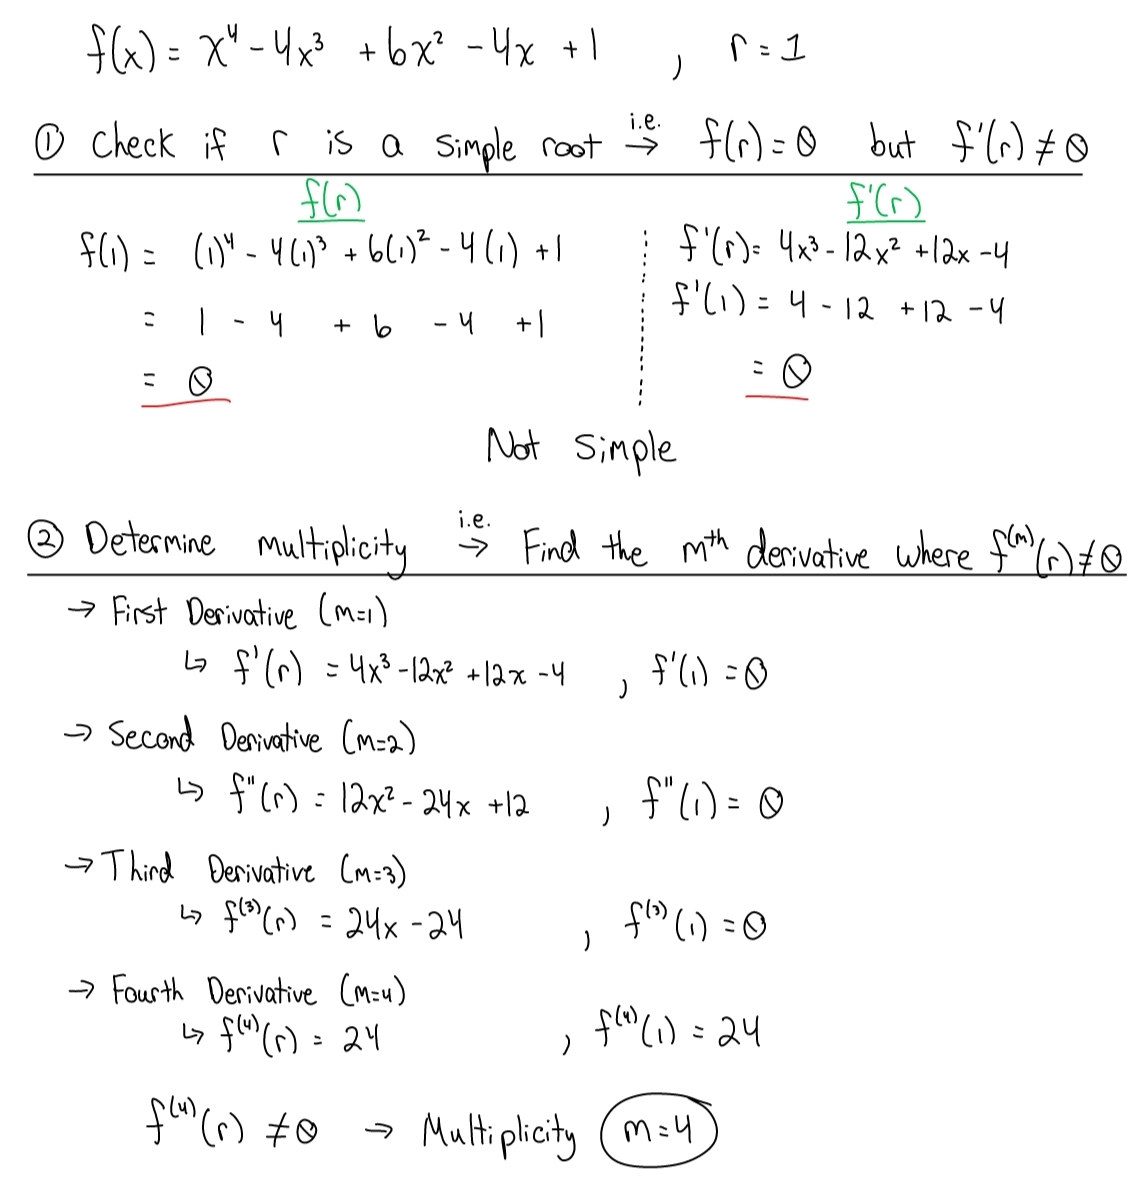 f(x) = x⁴ - 4x³ + 6x² - 4x + 1 , r = 1
① Check if r is a simple root i.e. → f(r) = 0 but f'(r) ≠ 0
f(r) f'(r)
f(1) = (1)⁴ - 4(1)³ + 6(1)² - 4(1) + 1 f'(r) = 4x³ - 12x² + 12x - 4
= 1 - 4 + 6 - 4 + 1 f'(1) = 4 - 12 + 12 - 4
= 0 = 0
Not Simple
② Determine multiplicity i.e. → Find the mᵗʰ derivative where f⁽ᵐ⁾(r) ≠ 0
→ First Derivative (m=1)
↳ f'(r) = 4x³ - 12x² + 12x - 4 , f'(1) = 0
→ Second Derivative (m=2)
↳ f"(r) = 12x² - 24x + 12 , f"(1) = 0
→ Third Derivative (m=3)
↳ f⁽³⁾(r) = 24x - 24 , f⁽³⁾(1) = 0
→ Fourth Derivative (m=4)
↳ f⁽⁴⁾(r) = 24 , f⁽⁴⁾(1) = 24
f⁽⁴⁾(r) ≠ 0 → Multiplicity m=4